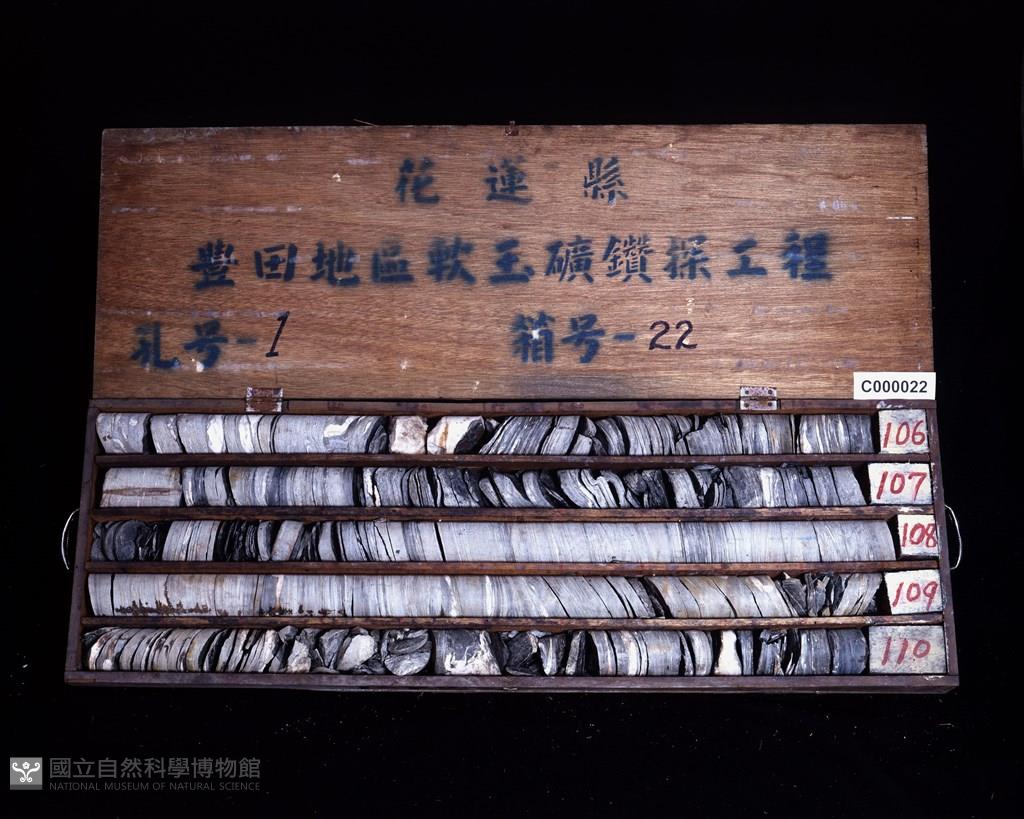 花蓮縣
豐田地區軟玉礦鑽探工程
孔号-1 箱号-22
C000022
106
107
108
109
110
國立自然科學博物館
NATIONAL MUSEUM OF NATURAL SCIENCE